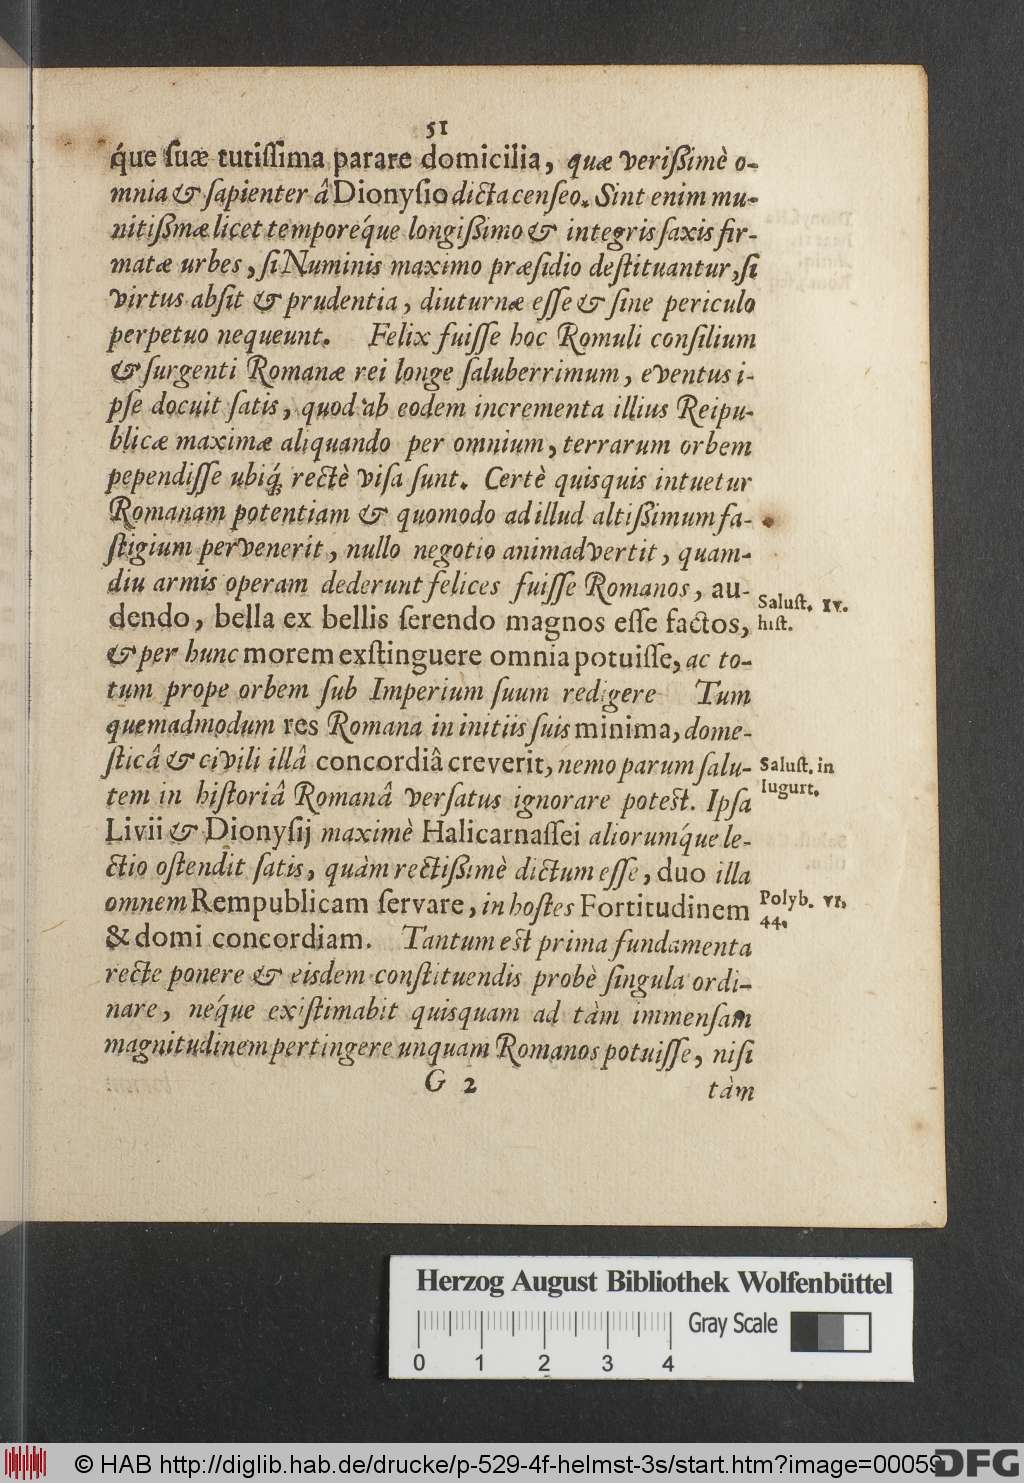 51
q́ue ſuæ tutiſſima parare domicilia, quæ veriſſimè o-
mnia & ſapienter â Dionyſio dicta cenſeo. Sint enim mu-
nitiſſmæ licet temporeq́ue longiſſimo & integris ſaxis fir-
matæ urbes, ſi Numinis maximo præſidio deſtituantur, ſi
virtus abſit & prudentia, diuturnæ eſſe & ſine periculo
perpetuo nequeunt. Felix fuiſſe hoc Romuli conſilium
& ſurgenti Romanæ rei longe ſaluberrimum, eventus i-
pſe docuit ſatis, quod ab eodem incrementa illius Reipu-
blicæ maximæ aliquando per omnium, terrarum orbem
pependiſſe ubiq́; rectè viſa ſunt. Certè quisquis intuetur
Romanam potentiam & quomodo ad illud altiſſimum fa-
ſtigium pervenerit, nullo negotio animadvertit, quam-
diu armis operam dederunt felices fuiſſe Romanos, au-
dendo, bella ex bellis ſerendo magnos eſſe factos,
Saluſt. IV.
hiſt.
& per hunc morem exſtinguere omnia potuiſſe, ac to-
tum prope orbem ſub Imperium ſuum redigere Tum
quemadmodum res Romana in initiis ſuis minima, dome-
ſticâ & civili illâ concordiâ creverit, nemo parum ſalu-
Saluſt. in
Iugurt.
tem in hiſtoriâ Romanâ verſatus ignorare poteſt. Ipſa
Livii & Dionyſij maximè Halicarnaſſei aliorumq́ue le-
ctio oſtendit ſatis, quàm rectiſſimè dictum eſſe, duo illa
omnem Rempublicam ſervare, in hoſtes Fortitudinem
Polyb. VI.
44.
& domi concordiam. Tantum eſt prima fundamenta
recte ponere & eisdem conſtituendis probè ſingula ordi-
nare, neq́ue exiſtimabit quisquam ad tàm immenſam
magnitudinem pertingere unquam Romanos potuiſſe, niſi
G 2
tàm
Herzog August Bibliothek Wolfenbüttel
Gray Scale
0 1 2 3 4
© HAB http://diglib.hab.de/drucke/p-529-4f-helmst-3s/start.htm?image=00059
DFG